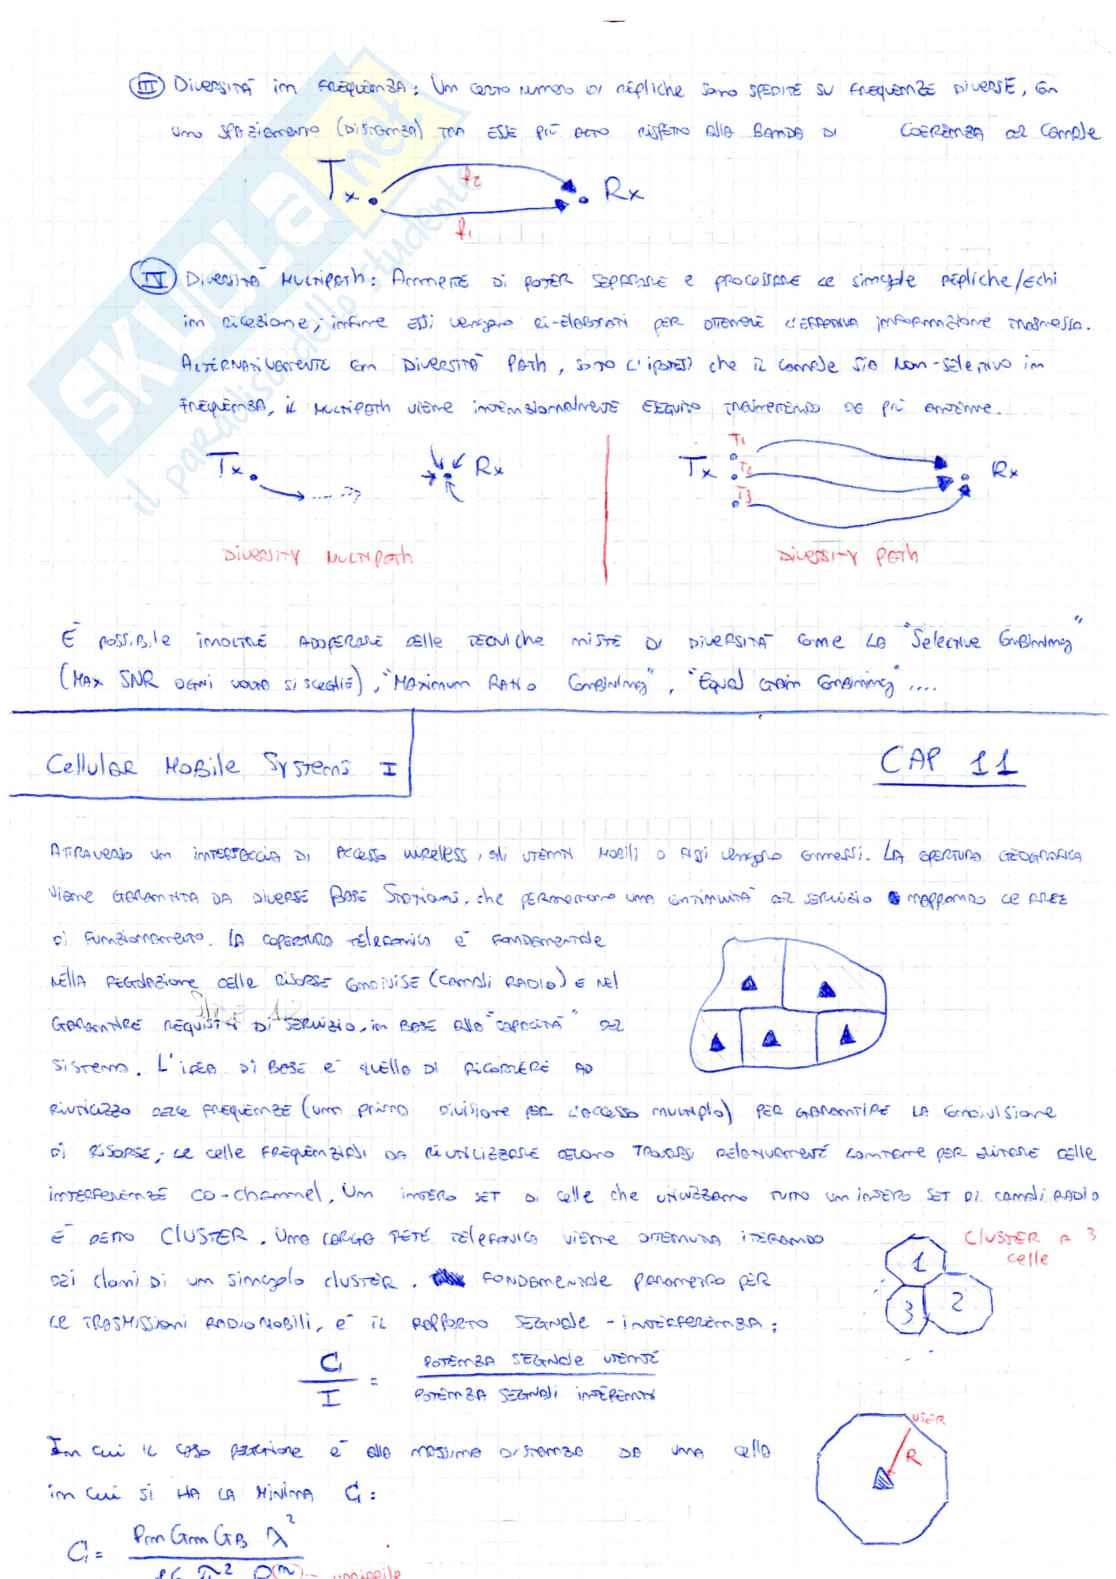 III Diversità in frequenza: Un certo numero di repliche sono spedite su frequenze diverse, con
uno spaziamento (distanza) tra esse più alto rispetto alla banda di coerenza del canale
Tx f2 Rx
f1
IV Diversità Multipath: Ammette di poter separare e processare le singole repliche/echi
in ricezione, infine essi vengono ri-elaborati per ottenere l'effettiva informazione trasmessa.
Alternativamente con diversità path, sotto l'ipotesi che il canale sia non-selettivo in
frequenza, il multipath viene intenzionalmente eseguito trasmettendo da più antenne.
Tx Rx Tx T1 T2 T3 Rx
Diversity Multipath Diversity Path
È possibile inoltre adoperare delle tecniche miste di diversità come la "Selective Combining"
(Max SNR ogni volta si sceglie), "Maximum Ratio Combining", "Equal Gain Combining" ....
Cellular Mobile Systems I CAP 11
Attraverso un interfaccia di accesso wireless, gli utenti mobili o fissi vengono connessi. La copertura geografica
viene garantita da diverse Base Stations, che permettono una continuità del servizio mappando le aree
di funzionamento. La copertura telefonica è fondamentale
nella regolazione delle risorse condivise (canali radio) e nel
garantire requisiti di servizio, in base alla "capacità" del
sistema. L'idea di base è quella di ricorrere ad
riutilizzo delle frequenze (una prima divisione per l'accesso multiplo) per garantire la condivisione
di risorse; le celle frequenziali da riutilizzare devono trovarsi relativamente lontane per evitare delle
interferenze co-channel. Un intero set di celle che utilizzano tutto un intero set di canali radio
è detto CLUSTER. Una larga rete telefonica viene ottenuta iterando
dei cloni di un singolo cluster. Fondamentale parametro per
le trasmissioni radiomobili, è il rapporto segnale-interferenza:
Cluster a 3
celle
1
3 2
C/I = potenza segnale utente / potenza segnali interferenti
In cui il caso peggiore è alla massima distanza da una cella
in cui si ha la minima C:
user
R
C = Pm Gm GB λ² / 16 π² R(n)
SKUOLA.net
il paradiso dello studente